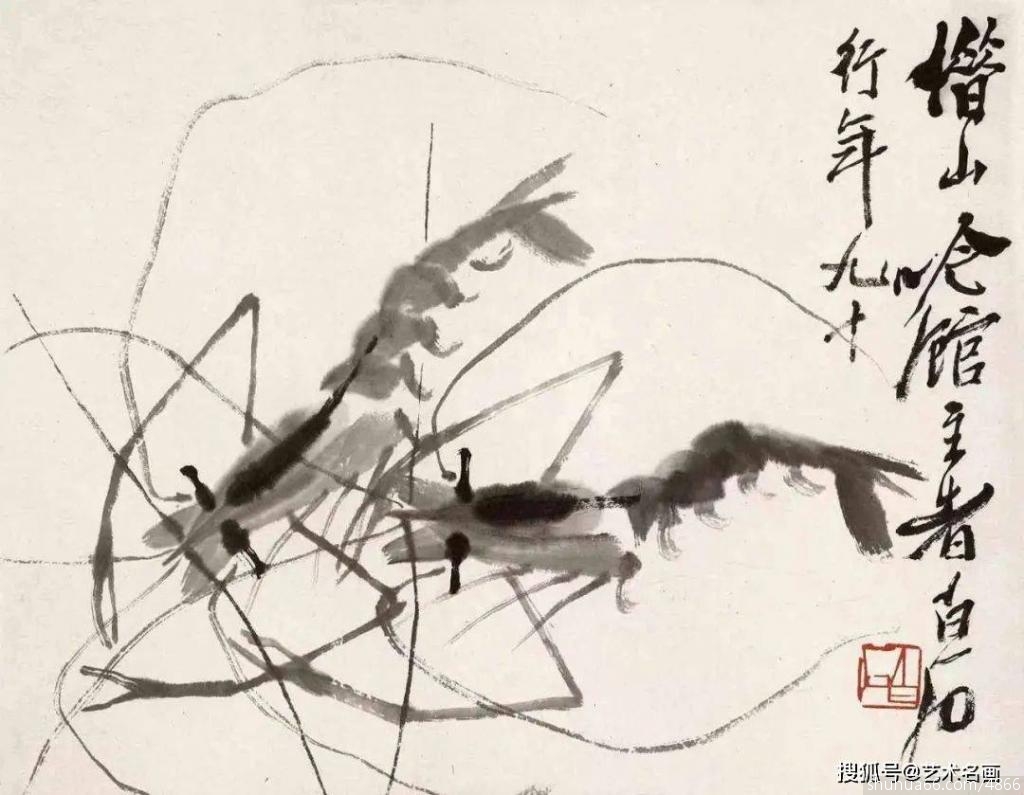 借山吟馆主者白石
行年九十
搜狐号@艺术名画
shuhua66.com/4866